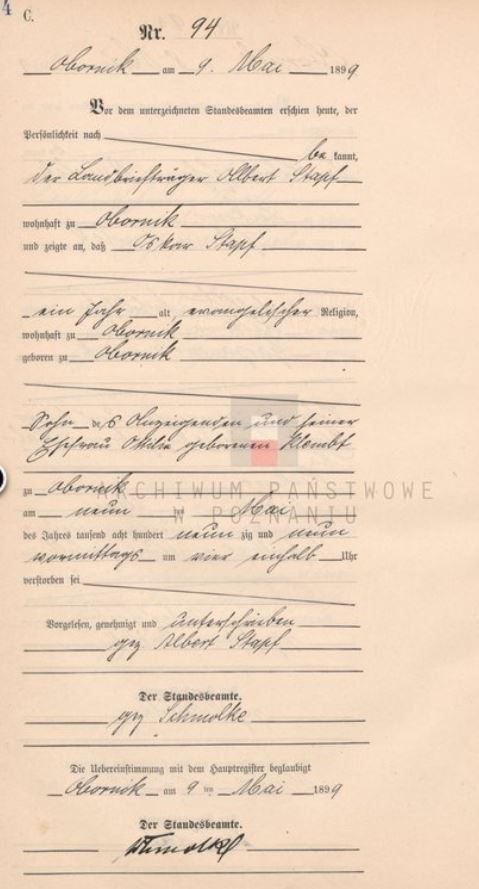 4 C.
Nr. 94
Obornik am 9. Mai 1899
Vor dem unterzeichneten Standesbeamten erschien heute, der
Persönlichkeit nach
be kannt,
der Landbriefträger Albert Stapf
wohnhaft zu Obornik
und zeigte an, daß Oskar Stapf
ein Jahr alt evangelischer Religion,
wohnhaft zu Obornik
geboren zu Obornik
Sohn des Anzeigenden und seiner
Ehefrau Ottilie geborenen Klembt
zu Obornik
ARCHIWUM PAŃSTWOWE
am neun ten Mai
W POZNANIU
des Jahres tausend acht hundert neun zig und neun
vormittags um vier einhalb Uhr
verstorben sei
Vorgelesen, genehmigt und unterschrieben
gez Albert Stapf
Der Standesbeamte.
gez Schmolke
Die Uebereinstimmung mit dem Hauptregister beglaubigt
Obornik am 9 ten Mai 1899
Der Standesbeamte.
Schmolke